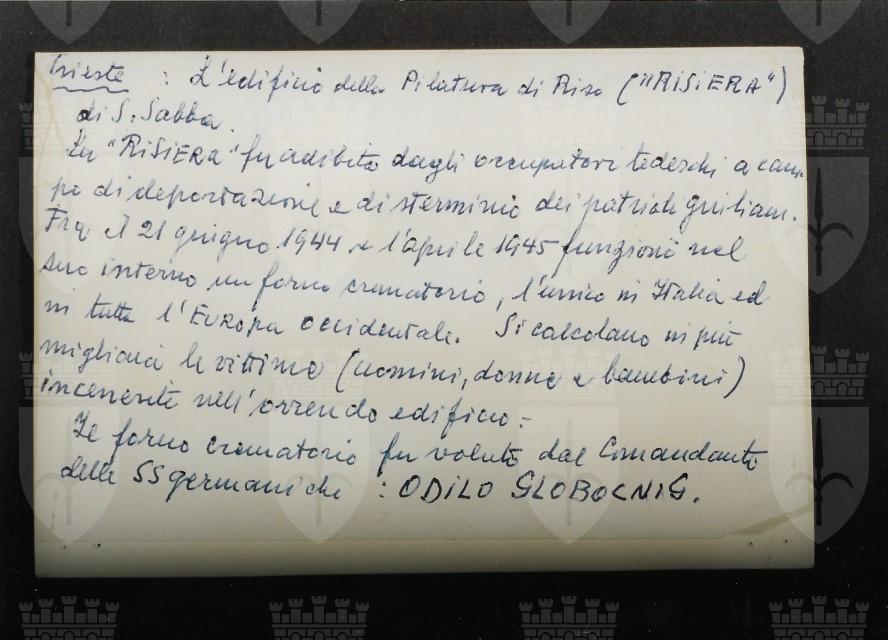 Trieste : L'edificio della Pilatura di Riso ("RiSiERA")
di S. Sabba.
La "RiSiERA" fu adibita dagli occupatori tedeschi a cam-
po di deportazione e di sterminio dei patrioti giuliani.
Fra il 21 giugno 1944 e l'aprile 1945 funzionò nel
suo interno un forno crematorio, l'unico in Italia ed
in tutta l'Europa occidentale. Si calcolano in più
migliaia le vittime (uomini, donne e bambini)
incenerite nell'orrendo edificio =
Il forno crematorio fu voluto dal Comandante
delle SS germaniche : ODiLO GLOBOCNiG.